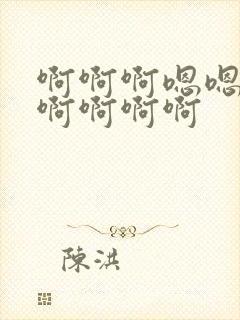 啊啊啊嗯嗯
啊啊啊啊
陳洪